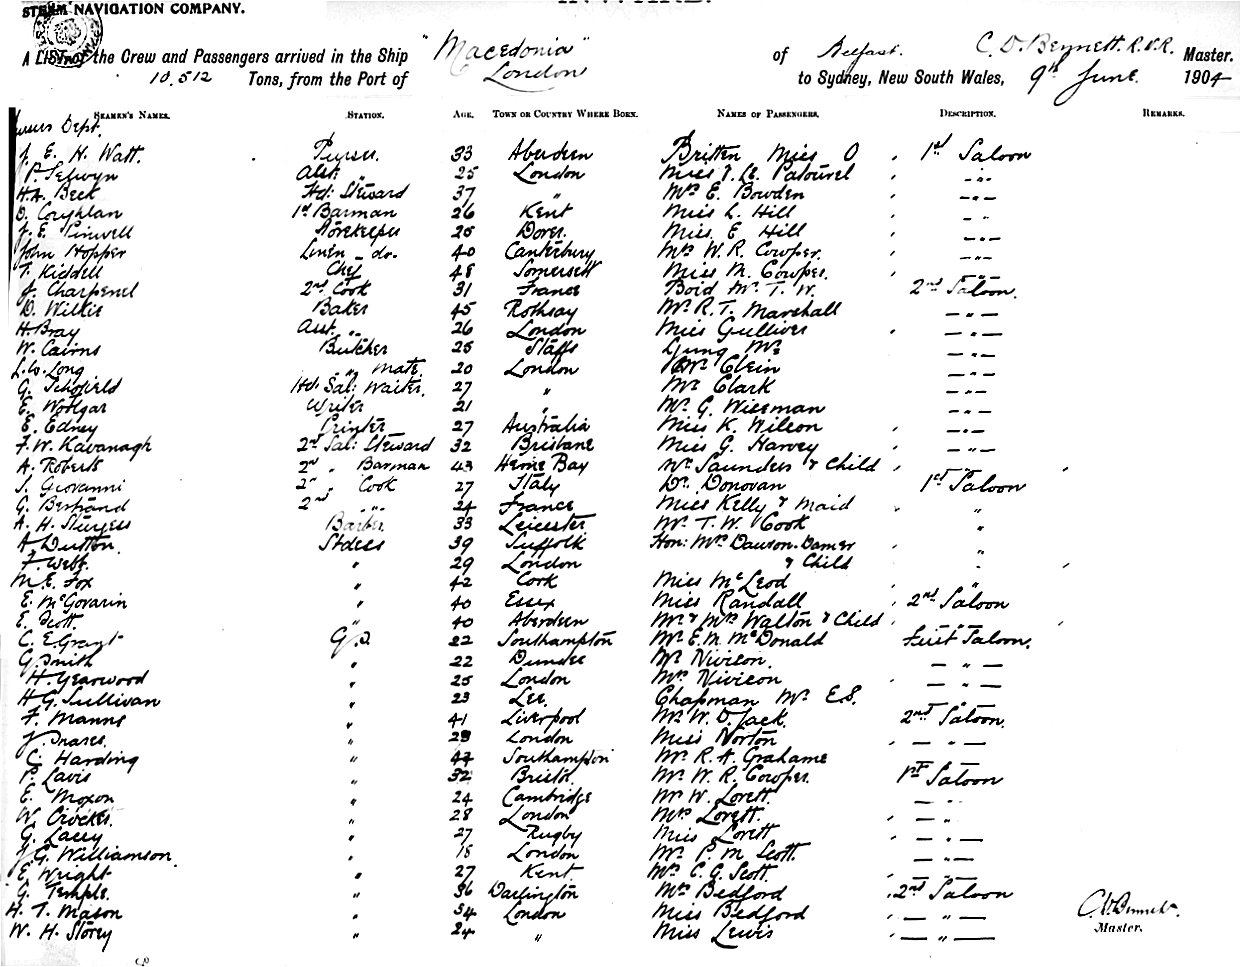 STEAM NAVIGATION COMPANY.
A LIST of the Crew and Passengers arrived in the Ship "Macedonia" of Belfast. C. D. Bennett. R.N.R. Master.
10,512 Tons, from the Port of London to Sydney, New South Wales, 9th June 1904
SEAMEN'S NAMES. STATION. AGE. TOWN OR COUNTRY WHERE BORN. NAMES OF PASSENGERS. DESCRIPTION. REMARKS.
Pursers Dept.
J. E. H. Watt. Purser. 33 Aberdeen Britten Miss O 1st Saloon
P. Selwyn Asst. " 25 London Miss J. Le Patourel — " —
H.A. Beck Hd: Steward 37 " Mrs E. Bowden — " —
D. Coryhlan 1st Barman 26 Kent Miss L. Hill — " —
J. E. Pinwell Storekeeper 25 Dover. Miss. E. Hill — " —
John Hopper Linen - do. 40 Canterbury Mrs W. R. Cowper. — " —
T. Kiddell Chef 48 Somersett Miss M. Cowper. "
J. Charpenel 2nd Cook 31 France Boid Mr. T. W. 2nd Saloon.
D. Wilkie Baker 45 Rothsay Mr. R. T. Marshall — " —
H. Bray Asst. " 26 London Miss Gulliver — " —
W. Cairns Butcher 25 Staffs Gung Mr. — " —
L. W. Long " mate. 20 London Mr. Clein — " —
G. Schofield Hd: Sal: Waiter. 27 " Mr Clark — " —
E. Woolgar Writer 21 " Mr. G. Wiseman — " —
E. Edney Printer 27 Australia Miss K. Wilson — " —
F. W. Kavanagh 2nd Sal: Steward 32 Brisbane Miss G. Harvey — " —
A. Roberts 2nd " Barman 43 Herne Bay Mr. Saunders & Child
J. Giovanni 2nd " Cook 27 Italy Dr. Donovan 1st Saloon
G. Bertrand 2nd " " 24 France Miss Kelly & Maid "
A. H. Sturgess Barber. 33 Leicester Mr. T. W. Cook "
A Dutton. Stdess 39 Suffolk Hon: Mrs Dawson-Damer "
F Webb. " 29 London & Child "
M. E. Fox " 42 Cork Miss McLeod "
E. McGovarin " 40 Essex Miss Randall 2nd Saloon
E. Scott. " 40 Aberdeen Mr. & Mrs Walton & Child " "
C. E Grant G.S. 22 Southampton Mr. E. M. McDonald First Saloon.
G. Smith " 22 Dundee Mr. Nivison. — " —
H. Yearwood " 25 London Mrs. Nivison — " —
H G. Sullivan " 23 Lee. Chapman Mr. E.S. "
F. Manns " 41 Liverpool Mr. W. D. Jack. 2nd Saloon.
J. Drares. " 23 London Miss Norton — " —
C. Harding " 44 Southampton Mr. R. A. Grahame "
P. Lavis " 32 Bristol. Mr. W. R. Cowper. 1st Saloon
E. Moxon " 24 Cambridge Mr W. Lovett. — "
W. Crocker. " 28 London Mrs Lovett. — "
G. Lacey " 27 Rugby Miss Lovett — " —
J. G. Williamson. " 18 London Mr. P. M. Scott. — " —
E. Wright " 27 Kent. Mr. C. G. Scott. — " —
G. Temple. " 36 Darlington Mrs Bedford 2nd Saloon
H. T. Mason " 34 London Miss Bedford — " —
W. H. Storey " 24 " Miss Lewis — " —
C. D. Bennett.
Master.